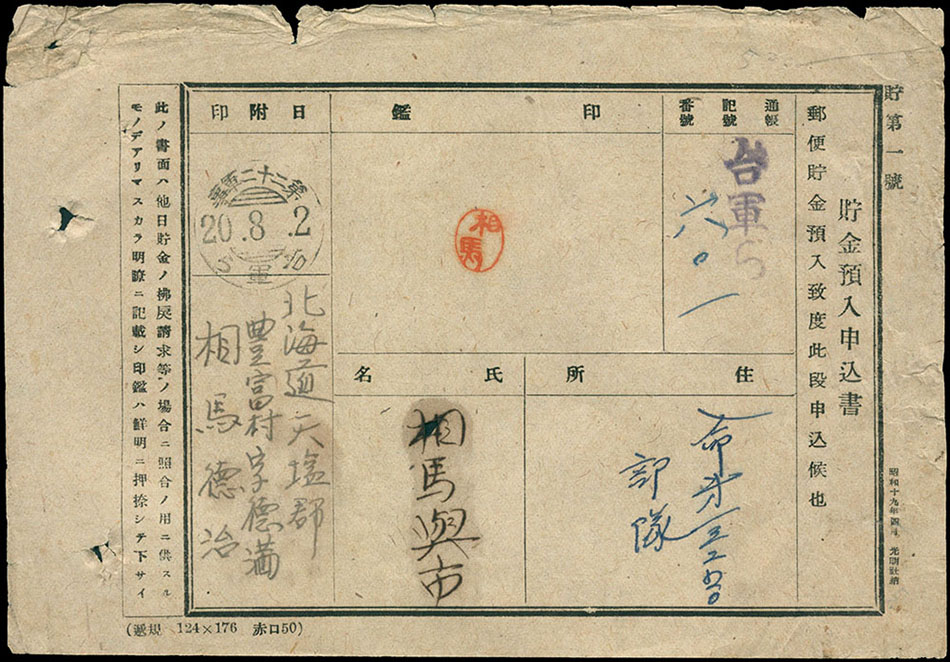 貯第一號
貯金預入申込書
郵便貯金預入致度此段申込候也
通帳
記號
番號
台軍ら
六〇一
印鑑
相馬
日附印
20.8.2
軍
住所
部隊
氏名
相馬與市
北海道天塩郡
豊富村字徳満
相馬徳治
此ノ書面ハ他日貯金ノ拂戻請求等ノ場合ニ照合ノ用ニ供スル
モノデアリマスカラ明瞭ニ記載シ印鑑ハ鮮明ニ押捺シテ下サイ
(遞規 124×176 赤口50)